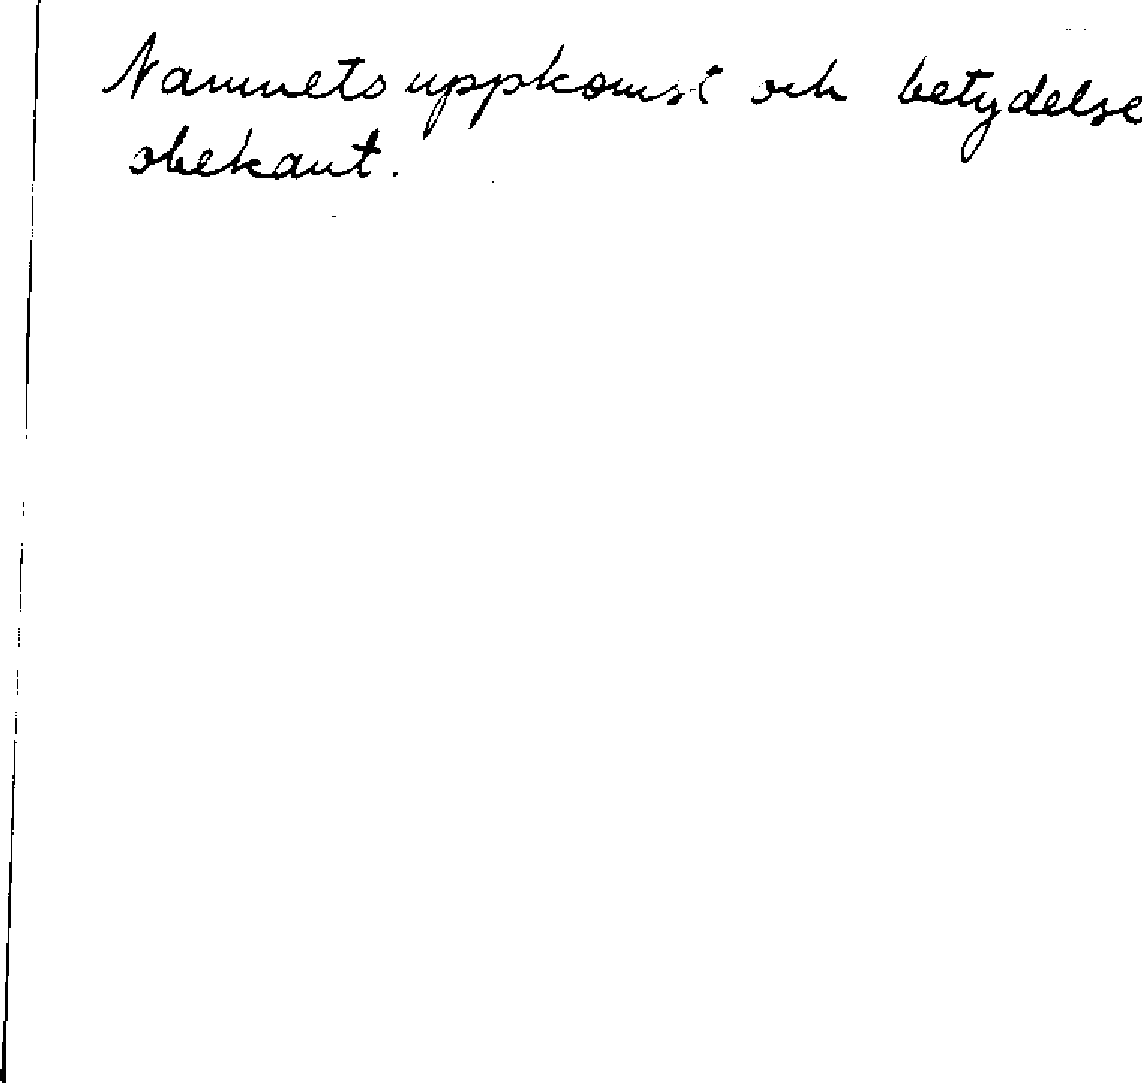 Namnets uppkomst och betydelse
obekant.